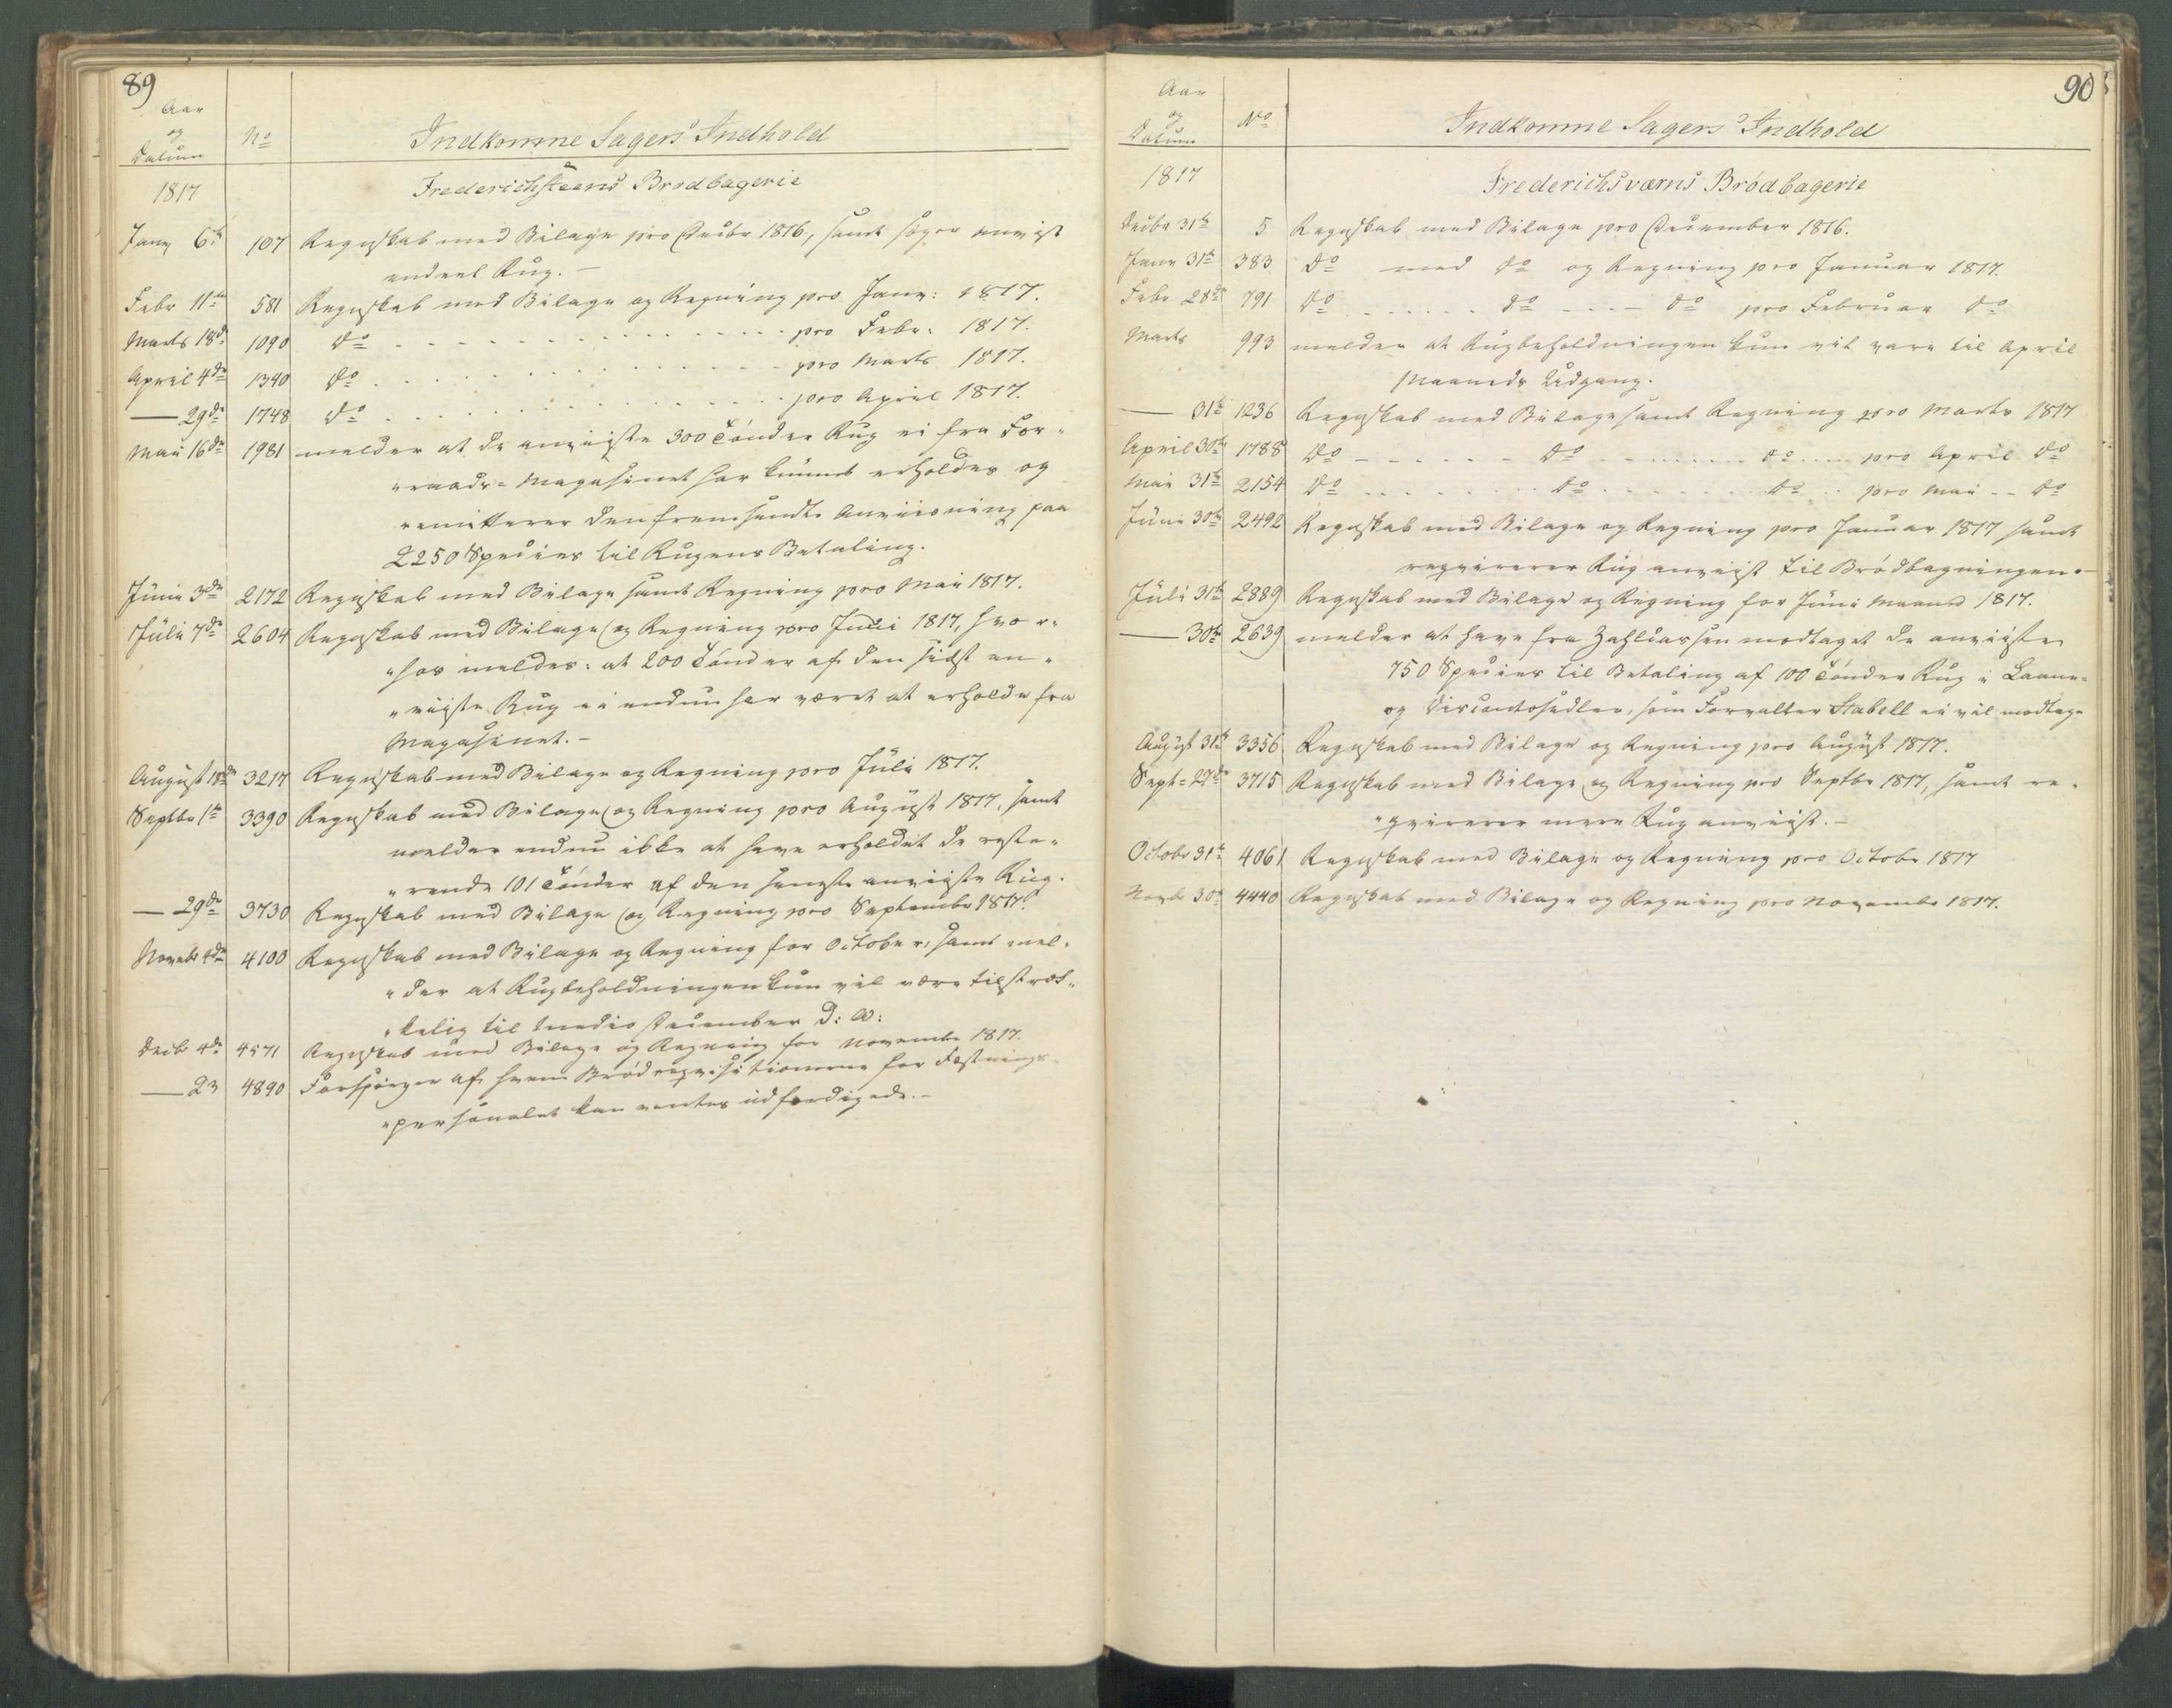 89
Aar
og
Datum
No
Indkomne Sagers Indhold
1817
Frederichsteens Brødbagerie
Janv 6te 107 Regnskab med Bilage pro Decbr 1816, samt søger anvist
endeel Rug. —
Febr 11te 581 Regnskab med Bilage og Regning pro Janv: 1817.
Marts 18de 1090 do pro Febr: 1817.
April 4de 1340 do pro Marts 1817.
— 29de 1748 do pro April 1817.
Mai 16de 1981 melder at de anviiste 300 Tønder Rug ei fra For-
"raads-Magasinet har kunnet erholdes og
remitterer den fremsendte Anviisning paa
2250 Species til Rugens Betaling.
Juni 3de 2172 Regnskab med Bilage samt Regning pro Mai 1817.
Juli 7de 2604 Regnskab med Bilage og Regning pro Juni 1817, hvor-
"hos meldes: at 200 Tønder af den sidst an-
"viiste Rug ei endnu har været at erholde fra
Magasinet. —
August 18de 3217 Regnskab med Bilage og Regning pro Juli 1817.
Septbr 1te 3390 Regnskab med Bilage og Regning pro August 1817, samt
melder endnu ikke at have erholdet de reste-
"rende 101 Tønder af den seneste anviiste Rug.
— 29de 3730 Regnskab med Bilage og Regning pro Septembr 1817.
Novebr 4de 4100 Regnskab med Bilage og Regning for October, samt mel-
"der at Rugbeholdningen kun vil være tilstræk-
"kelig til medio December d: A:
Decb 4de 4571 Regnskab med Bilage og Regning for Novembr 1817.
— 23 4890 Forspørger af hvem Brødreqvisitionerne for Fæstnings-
"personalet kan ventes udfærdigede. —
90
Aar
og
Datum
No
Indkomne Sagers Indhold
1817
Frederichsværns Brødbagerie
Decbr 31te 5 Regnskab med Bilage pro December 1816.
Janv 31te 383 do med do og Regning pro Januar 1817.
Febr 28de 791 do do do pro Februar do
Marts 993 melder at Rugbeholdningen kun vil vare til April
Maaneds Udgang.
— 31te 1236 Regnskab med Bilage samt Regning pro Marts 1817
April 30te 1788 do do do pro April do
Mai 31te 2154 do do do pro Mai do
Juni 30te 2492 Regnskab med Bilage og Regning pro Januar 1817 samt
reqvirerer Rug anviist til Brødbagningen. —
Juli 31te 2889 Regnskab med Bilage og Regning for Juni Maaned 1817.
— 30te 2639 melder at have fra Zahlcassen modtaget de anviiste
750 Species til Betaling af 100 Tønder Rug i Laane-
og Discontosedler, som Forvalter Stabell ei vil modtage
August 31te 3356 Regnskab med Bilage og Regning pro August 1817.
Sept= 27de 3715 Regnskab med Bilage og Regning pro Septbr 1817, samt re-
"qvirerer mere Rug anviist. —
Octobr 31te 4061 Regnskab med Bilage og Regning pro Octobr 1817
Novbr 30te 4440 Regnskab med Bilage og Regning pro Novembr 1817.